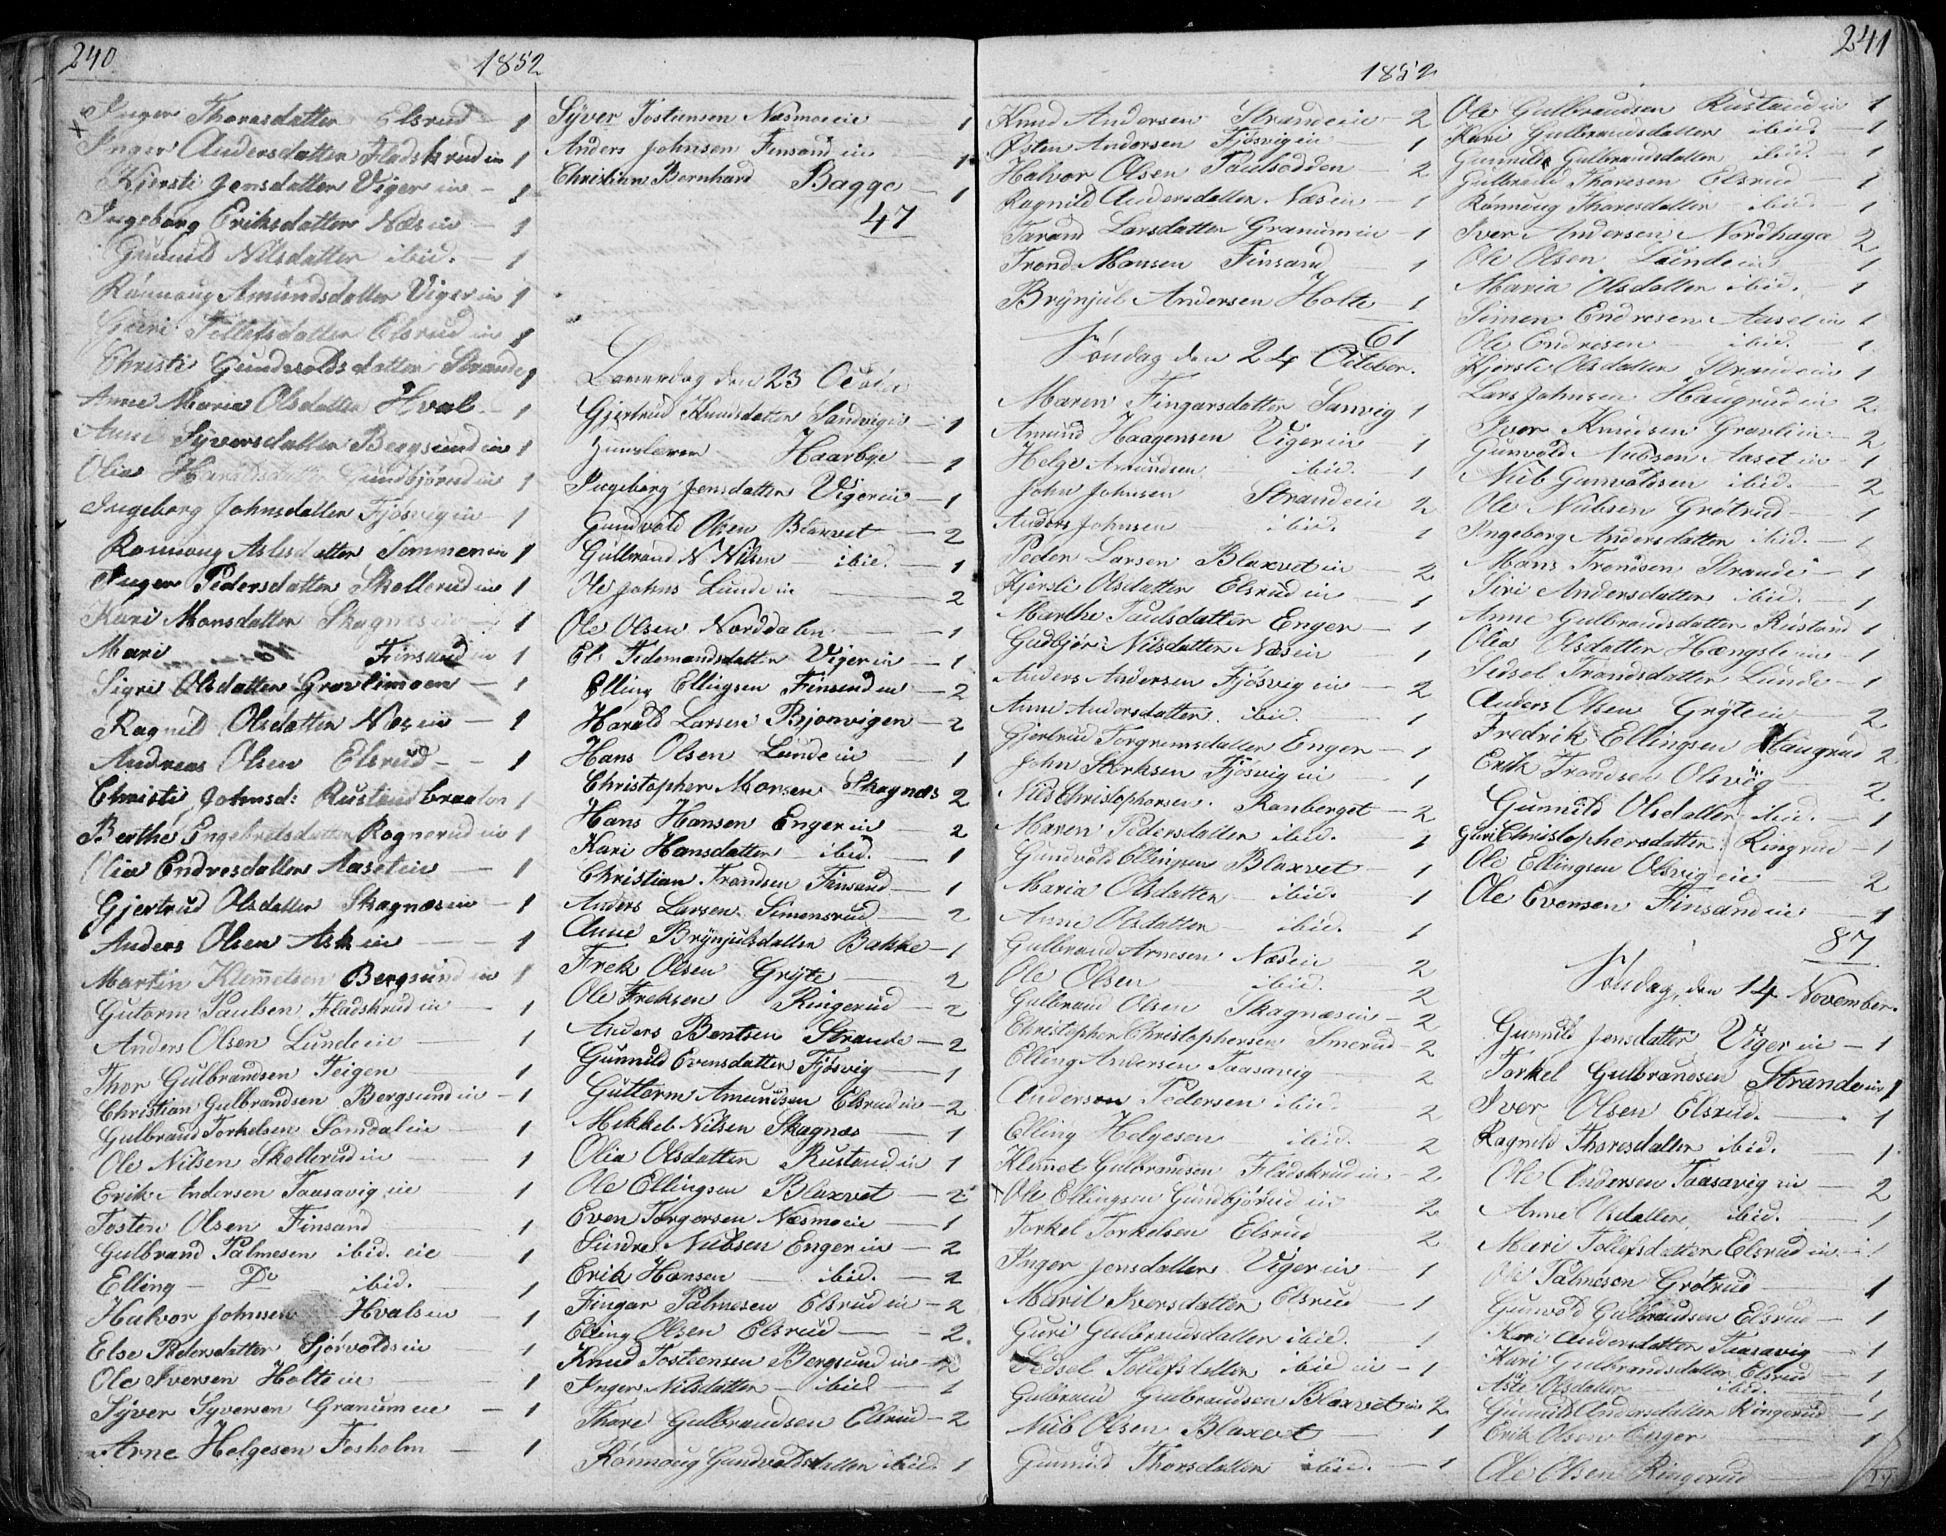 240
1852
Inger Thoresdatter Elsrud — 1
Inger Andersdatter Fladskrudin 1
Kjersti Jensdatter Viger in — 1
Ingeborg Eriksdatter Næs in — 1
Gunnild Nilsdatter ibid. — 1
Rönnoug Amundsdatter Viger in 1
Guri Tollefsdatter Elsrud in 1
Christi Gundvoldsdatter Strande 1
Anne Maria Olsdatter Hval — 1
Anne Syversdatter Bergsund in 1
Olia Haraldsdatter Gundbjörud in 1
Ingeborg Johnsdatter Fjösvig in — 1
Rönnoug Aslesdatter 1
Inger Pedersdatter Skollerud in 1
Kari Monsdatter Skagnæs in 1
Mari Finsand in 1
Sigri Olsdatter Gravlimoen — 1
Ragnild Olsdatter Næs in — 1
Andreas Olsen Elsrud — 1
Christi Johnsd: Rustand braaten 1
Berthe Engebretsdatter Rognerud in 1
Olia Endresdatter Aaset in — 1
Gjertrud Olsdatter Skagnæs in — 1
Anders Olsen Ask in — 1
Martin Klemetsen Bergsund in 1
Gutorm Paulsen Fladskrud in — 1
Anders Olsen Lunde eie — 1
Thor Gulbrandsen Teigen 1
Christian Gulbrandsen Bergsund in — 1
Gulbrand Torkelsen Somdal in — 1
Ole Nilsen Skollerud in — 1
Erik Andersen Taasavig in — 1
Tosten Olsen Finsand — 1
Gulbrand Palmesen ibid. eie — 1
Elling — Do ibid. — 1
Halvor Johnsen Hvals in — 1
Else Pedersdatter Sjörvolds in 1
Ole Iversen Holte in — 1
Syver Syversen Granum eie — 1
Arne Helgesen Fosholm — 1
Syver Tostensen Næsmoeie — 1
Anders Johnsen Finsand in 1
Christian Bernhard Bagge — 1
47
Löverdag den 23 October
Gjertrud Knudsdatter Sandvig in — 1
Haarbye — 1
Ingeborg Jensdatter Viger in — 1
Gundvold Olsen Blaxvet — 2
Gulbrand N. Nilsen — ibid. — 1
Ole Johns Lunde in — 2
Ole Olsen Norddalen — 1
Els Tidemandsdatter Viger in — 1
Elling Ellingsen Finsand in — 2
Harald Larsen Bjonvigen — 2
Hans Olsen Lunde in — 1
Christopher Monsen Skagnæs 2
Hans Hansen Enger in 2
Kari Hansdatter — ibid. — 1
Christian Trondsen Finsand — 1
Anders Larsen Simensrud — 2
Anne Brynjulsdatter Bakke — 1
Frek Olsen Gryte — 2
Ole Freksen Ringerud — 2
Anders Bentsen Strande — 2
Gunnild Evensdatter Fjösvig — 1
Guttorm Amundsen Elsrud in — 2
Mikkel Nilsen Skagnæs — 1
Olia Olsdatter Rustand in 1
Ole Ellingsen Blaxvet — 2
Even Torgersen Næsmoeie — 1
Sindre Nubsen Enger in — 2
Erik Hansen — ibid. — 2
Fingar Palmesen Elsrud in — 2
Elling Olsen Elsrud — 2.
Knud Tosteensen Bergsund in — 2
Inger Nilsdatter — ibid — 1
Thore Gulbrandsen Elsrud — 2
Rönnoug Gundvoldsdatter ibid. 1
241
1852
Knud Andersen Strande in — 2
Østen Andersen Fjösvig in 1
Halvor Olsen Paulsodden 2
Ragnild Andersdatter Næs in — 1
Tarand Larsdatter Granum in — 1
Trond Monsen Finsand 1
Brynjul Andersen Holte — 1
61
Söndag den 24 October.
Maren Fingarsdatter Sanvig 1
Amund Haagensen Viger in — 1
Helge Amundsen ibid. 1
John Johnsen Strande in 2
Anders Johnsen ibid. 1
Peder Larsen Blaxvet in — 2
Kjersti Olsdatter Elsrud in 1
Marthe Paulsdatter Enger — 1
Gudbjör Nilsdatter Næs in 1
Anders Andersen Fjösvig in — 2
Anne Andersdatter. ibid. — 1
Gjertrud Torgremsdatter Enger — 1
John Størksen Fjösvig in — 1
Nub Christophersen. Ranberget — 2
Maren Pedersdatter ibid. — 1
Gundvold Ellingsen Blaxvet — 1
Maria Olsdatter — ibid. 1
Anne Olsdatter — ibid. 1
Gulbrand Arnesen Næs in — 2
Ole Olsen — ibid. 2
Gulbrand Olsen Skagnæs in — 2
Christopher Christophersen Smerud — 2
Elling Andersen Taasavig — 2
Anderson Pedersen ibid. 2
Elling Helgesen ibid. 2
Klemet Gulbrandsen Fladskrud in — 2
Ole Ellingsen Gundbjörud in 2
Torkel Torkelsen Elsrud 2
Inger Jensdatter Viger in — 1
Marit Iversdatter Elsrud — 1
Guri Gulbrandsdatter ibid. 1
Sidsel Tollefsdatter ibid in — 1
Gulbrand Gulbrandsen Blaxvet in 2
Nub Olsen Blaxvet — 1
Gunnild Thorsdatter ibid. — 1
Ole Gulbrandsen Rustand in 1
Kari Gulbrandsdatter ibid. — 1
Gunnild Gulbrandsdatter ibid. — 1
Gulbrand Thoresen Elsrud 1
Rönnoug Thoresdatter ibid. — 1
Iver Andersen Nordhage 2
Ole Olsen Lunde in 1
Maria Olsdatter ibid. — 1
Simen Endresen Aaset in 1
Ole Endresen ibid. 1
Kjersti Olsdatter Strande in 1
Lars Johnsen Haugrud in 2
Iver Knudsen Gravli in — 2
Gunvold Nubsen Aaset in — 1
Nub Gunvoldsen ibid. — 2
Ole Nubsen Grøtrud — 1
Ingeborg Andersdatter ibid. — 1
Mons Trondsen Strande — 1
Siri Andersdatter ibid. — 1
Anne Gulbrandsdatter Rustand 1
Olia Olsdatter Hængsle in — 1
Sidsel Trondsdatter Lunde — 1
Anders Olsen Gryte in — 2
Fredrik Ellingsen Haugrud 2
Erik Trondsen Olsvig — 2
Gunnild Olsdatter ibid. — 1
Guri Christophersdatter Ringrud — 1
Ole Ellingsen Olsvig eie — 2
Ole Evensen Finsand in — 1
87
Söndag, den 14 November.
Gunnild Jensdatter Viger in — 1
Torkel Gulbrandsen Strande in 1
Iver Olsen Elsrud. — 1
Ragnild Thoresdatter ibid. — 1
Ole Andersen Taasavig in — 2
Anne Olsdatter ibid. — 1
Mari Tollefsdatter Elsrud in — 1
Ole Palmesen Grøtrud — 1
Gunvold Gulbrandsen Elsrud — 1
Kari Andersdatter Taasavig — 1
Kari Gulbrandsdatter Elsrud — 1
Olsdatter — ibid. — 1
Gunnild Andersdatter Ringerud — 1
Erik Olsen Enger — 1
Ole Olsen Ringerud